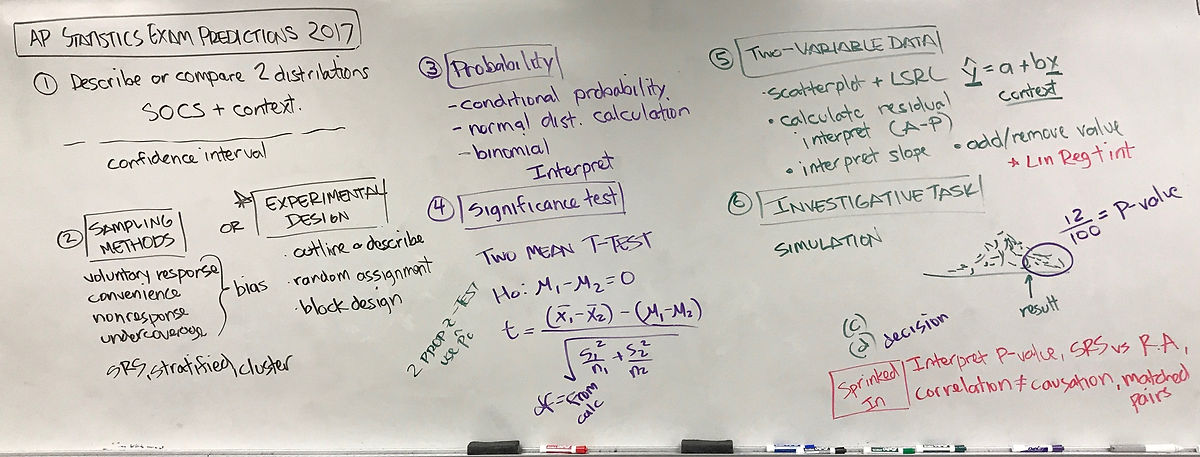 AP STATISTICS EXAM PREDICTIONS 2017
① Describe or compare 2 distribations
SOCS + context.
confidence interval
② SAMPLING METHODS
voluntary response
convenience
nonresponse
undercoverage
bias
SRS, stratified, cluster
OR
* EXPERIMENTAL DESIGN
· outline or describe
· random assignment
· block design
③ Probability
- conditional probability
- normal dist. calculation
- binomial
Interpret
④ Significance test
TWO MEAN T-TEST
Ho: μ₁-μ₂=0
t = (x̄₁-x̄₂) - (μ₁-μ₂)
√ s₁²/n₁ + s₂²/n₂
df = from calc
2 PROP Z-TEST
use p̂c
⑤ TWO-VARIABLE DATA
· scatterplot + LSRL
• calculate residual
interpret (A-P)
• interpret slope
ŷ = a + bx
context
• add/remove value
* Lin Reg t int
⑥ INVESTIGATIVE TASK
SIMULATION
12/100 = P-value
result
(c)
(d) decision
Sprinked In
Interpret P-value, SRS vs R.A,
correlation ≠ causation, matched
pairs